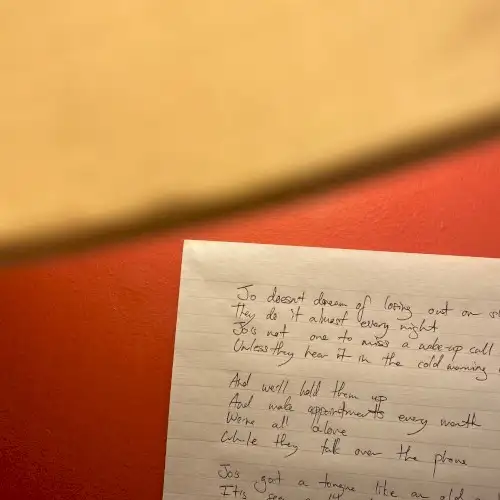 Jo doesn't dream of losing out on
They do it almost every night
Jo's not one to miss a wake-up call
Unless they hear it in the cold morning
And we'll hold them up
And make appointments every month
We're all alone
While they talk over the phone
Jo's got a tongue like an old
It's